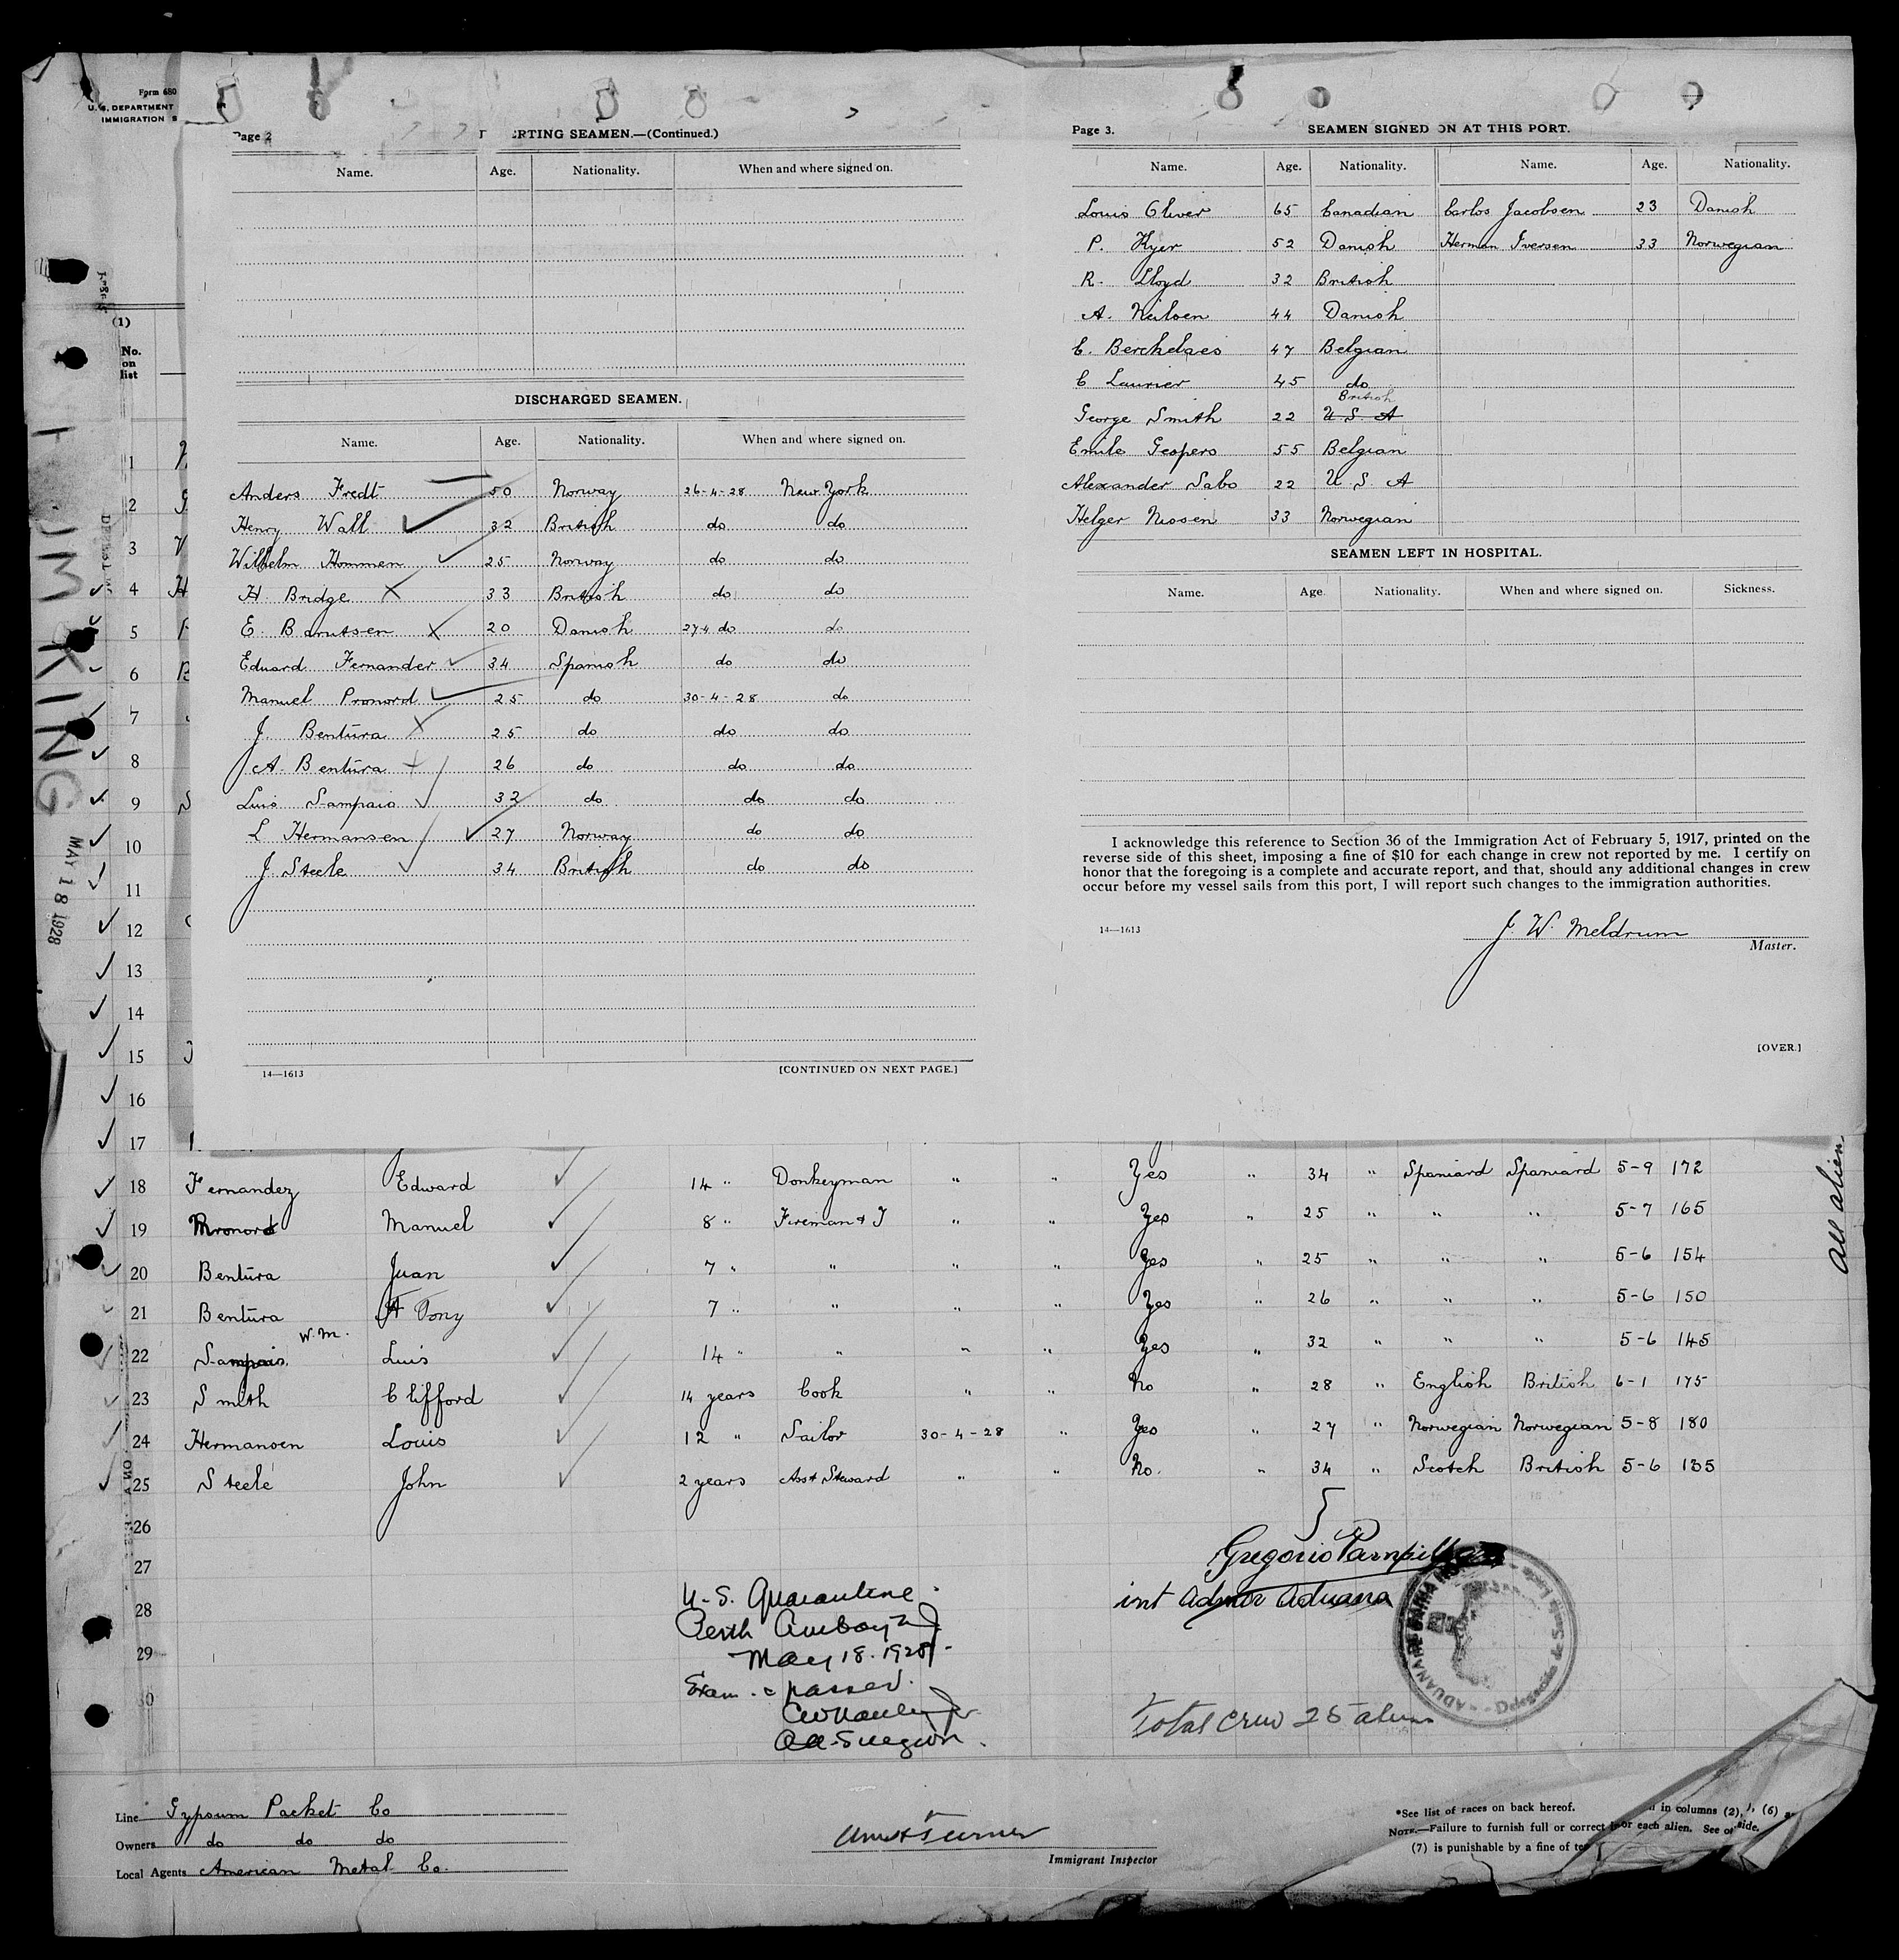 Form 680
U. S. DEPARTMENT
IMMIGRATION S
(1)
No.
on
list
JIM KING
MAY 18 1928
Page 2
RTING SEAMEN.—(Continued.)
Name. Age. Nationality. When and where signed on.
DISCHARGED SEAMEN.
Name. Age. Nationality. When and where signed on.
Anders Fredt 50 Norway 26-4-28 New York
Henry Wall 32 British do do
Wilhelm Hommen 25 Norway do do
H. Bridge 33 British do do
E. Barutsen 20 Danish 27-4 do do
Eduard Fernander 34 Spanish do do
Manuel Pronord 25 do 30-4-28 do
J. Bentura 25 do do do
A. Bentura 26 do do do
Luis Sampaio 32 do do do
L Hermansen 27 Norway do do
J Steele 34 British do do
14—1613 [CONTINUED ON NEXT PAGE.]
Page 3. SEAMEN SIGNED ON AT THIS PORT.
Name. Age. Nationality. Name. Age. Nationality.
Louis Oliver 65 Canadian Carlos Jacobsen 23 Danish
P. Kyer 52 Danish Herman Iversen 33 Norwegian
R. Lloyd 32 British
A. Neilsen 44 Danish
C. Berckelaes 47 Belgian
C Laurier 45 do
British
George Smith 22 U. S. A
Emile Gespers 55 Belgian
Alexander Sabo 22 U. S. A
Helger Nissen 33 Norwegian
SEAMEN LEFT IN HOSPITAL.
Name. Age. Nationality. When and where signed on. Sickness.
I acknowledge this reference to Section 36 of the Immigration Act of February 5, 1917, printed on the
reverse side of this sheet, imposing a fine of $10 for each change in crew not reported by me. I certify on
honor that the foregoing is a complete and accurate report, and that, should any additional changes in crew
occur before my vessel sails from this port, I will report such changes to the immigration authorities.
J. W. Meldrum
14—1613 Master.
[OVER.]
1
2
3
4
5
6
7
8
9
10
11
12
13
14
15
16
17
18 Fernandez Edward 14 " Donkeyman " " Yes " 34 " Spaniard Spaniard 5-9 172
19 Pronord Manuel 8 " Fireman & T " " Yes " 25 " " " 5-7 165
20 Bentura Juan 7 " " " " Yes " 25 " " " 5-6 154
21 Bentura A Tony 7 " " " " Yes " 26 " " " 5-6 150
W.M.
22 Sampaio Luis 14 " " " " Yes " 32 " " " 5-6 145
23 Smith Clifford 14 years Cook " " No " 28 " English British 6-1 175
24 Hermansen Louis 12 " Sailor 30-4-28 " Yes " 27 " Norwegian Norwegian 5-8 180
25 Steele John 2 years Asst Steward " " No. " 34 " Scotch British 5-6 135
26
27
28
29
30
All alien
Gregorio
int Admor Aduana
ADUANA DE BAHIA
Delegación de
U.S. Quarantine
Perth Amboy NJ
May 18. 1928
Exam. & passed.
Surgeon.
Total crew 25 alien
Line Gypsum Packet Co
Owners do do do
Local Agents American Metal Co.
Turner
Immigrant Inspector
*See list of races on back hereof. in columns (2), (6)
NOTE.—Failure to furnish full or correct or each alien. See o side.
(7) is punishable by a fine of te